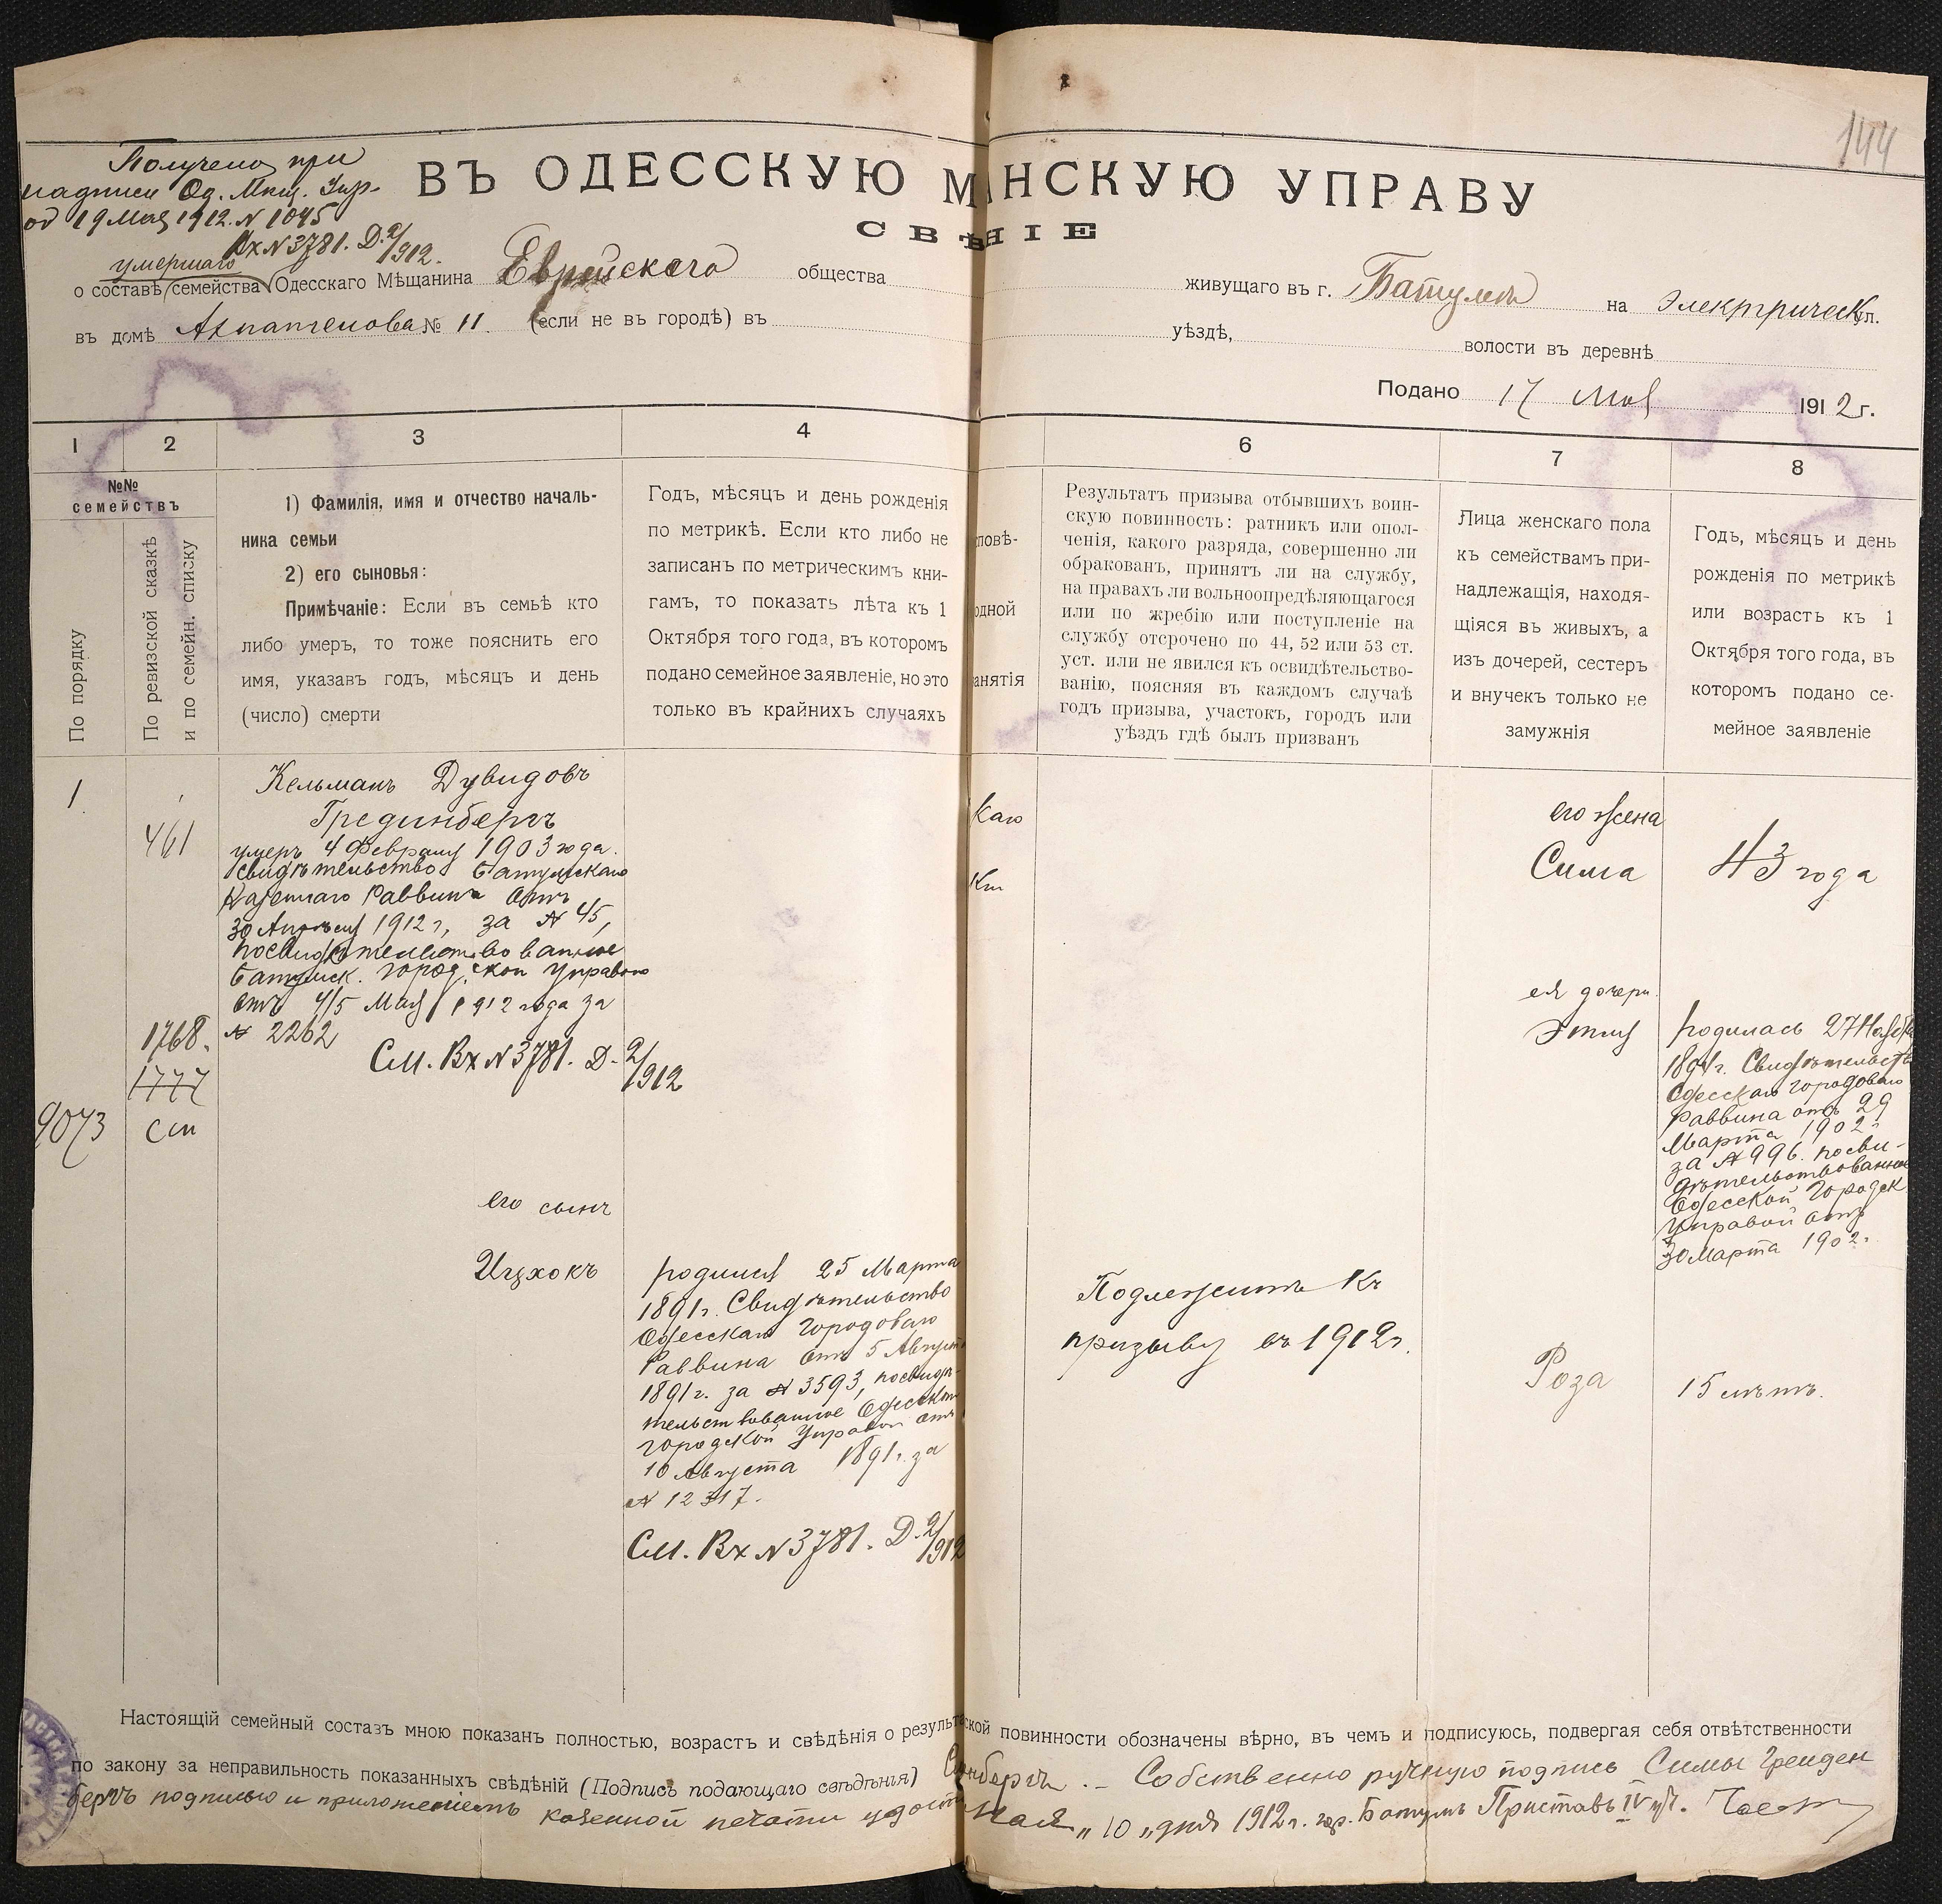 144
Получено при
надписи Од. Мѣщ. Упр.
от 19 Мая 1912. N 1045
Вх N 3781. Д. 2/1912.
ВЪ ОДЕССКУЮ М НСКУЮ УПРАВУ
СВѢ НІЕ
умершаго
о составѣ семейства Одесскаго Мѣщанина Еврейскаго общества
живущаго въ г. Батумѣ на Электрическ ул.
въ домѣ № 11. (если не въ городѣ) въ
уѣздѣ, волости въ деревнѣ
Подано 17 Мая 1912 г.
1 2 3 4 6 7 8
№№ семействъ
По порядку
По ревизской сказкѣ и по семейн. списку
1) Фамилія, имя и отчество началь-
ника семьи
2) его сыновья:
Примѣчаніе: Если въ семьѣ кто
либо умеръ, то тоже пояснить его
имя, указавъ годъ, мѣсяцъ и день
(число) смерти
Годъ, мѣсяцъ и день рожденія
по метрикѣ. Если кто либо не
записанъ по метрическимъ кни-
гамъ, то показать лѣта къ 1
Октября того года, въ которомъ
подано семейное заявленіе, но это
только въ крайнихъ случаяхъ
повѣ-
одной
анятія
Результатъ призыва отбывшихъ воин-
скую повинность: ратникъ или опол-
ченія, какого разряда, совершенно ли
обракованъ, принятъ ли на службу,
на правахъ ли вольноопредѣляющагося
или по жребію или поступленіе на
службу отсрочено по 44, 52 или 53 ст.
уст. или не явился къ освидѣтельство-
ванію, поясняя въ каждомъ случаѣ
годъ призыва, участокъ, городъ или
уѣздъ гдѣ былъ призванъ
Лица женскаго пола
къ семействамъ при-
надлежащія, находя-
щіяся въ живыхъ, а
изъ дочерей, сестеръ
и внучекъ только не
замужнія
Годъ, мѣсяцъ и день
рожденія по метрикѣ
или возрасть къ 1
Октября того года, въ
которомъ подано се-
мейное заявленіе
1
461
1768.
1777
9073
См
Кельманъ Дувидовъ
Грединбергъ
умеръ 4 Февраля 1903 года.
Свидѣтельство Батумскаго
Казеннаго Раввина отъ
30 Апрѣля 1912 г, за N 45,
посвидѣтельствованное
Батумск. городской Управою
отъ 4/5 Мая 1912 года за
N 2262
См. Вх N 3781. Д. 2/1912
его сынъ
Ицхокъ
родился 25 Марта
1891 г. Свидѣтельство
Одесскаго Городоваго
Раввина отъ 5 Августа
1891 г. за N 3593, посвидѣ-
тельствованное Одесской
городской Управой отъ
10 Августа 1891 г. за
N 12317.
См. Вх N 3781. Д. 2/1912
Подлежитъ къ
призыву въ 1912 г.
его жена
Сима
43 года
ея дочери
Этля
родилась 27 Ноября
Свидѣтельств
Одесскаго городоваго
Раввина отъ 29
Марта 1902 г
за N 996. посви-
дѣтельствованное
Одесской Городск
Управой отъ
30 Марта 1902.
Роза
15 лѣтъ.
Настоящій семейный составъ мною показанъ полностью, возрастъ и свѣдѣнія о результа
ской повинности обозначены вѣрно, въ чемъ и подписуюсь, подвергая себя отвѣтственности
по закону за неправильность показанныхъ свѣдѣній (Подпись подающаго свѣдѣнія)
нбергъ. – Собственно ручную подпись Симы Греиден
бергъ подписью и приложеніемъ казенной печати удост
Мая „10„ дня 1912 г. гор. Батумъ Приставъ IV уч.